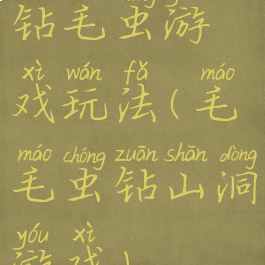 钻毛虫游
xì wán fǎ máo
戏玩法(毛
máo chóng zuān shān dòng
毛虫钻山洞
yóu xì
游戏)